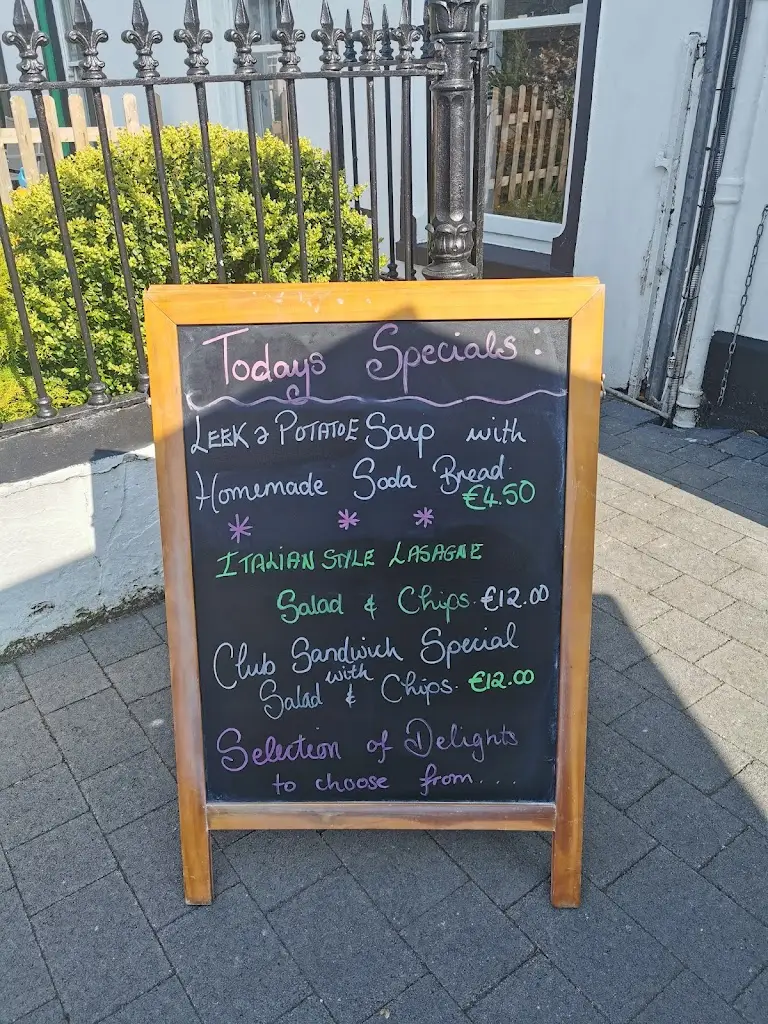 Todays Specials:
LEEK & POTATOE Soup with
Homemade Soda Bread.
€4.50
ITALIAN STYLE LASAGNE
Salad & Chips. €12.00
Club Sandwich Special
with
Salad & Chips. €12.00
Selection of Delights
to choose from....